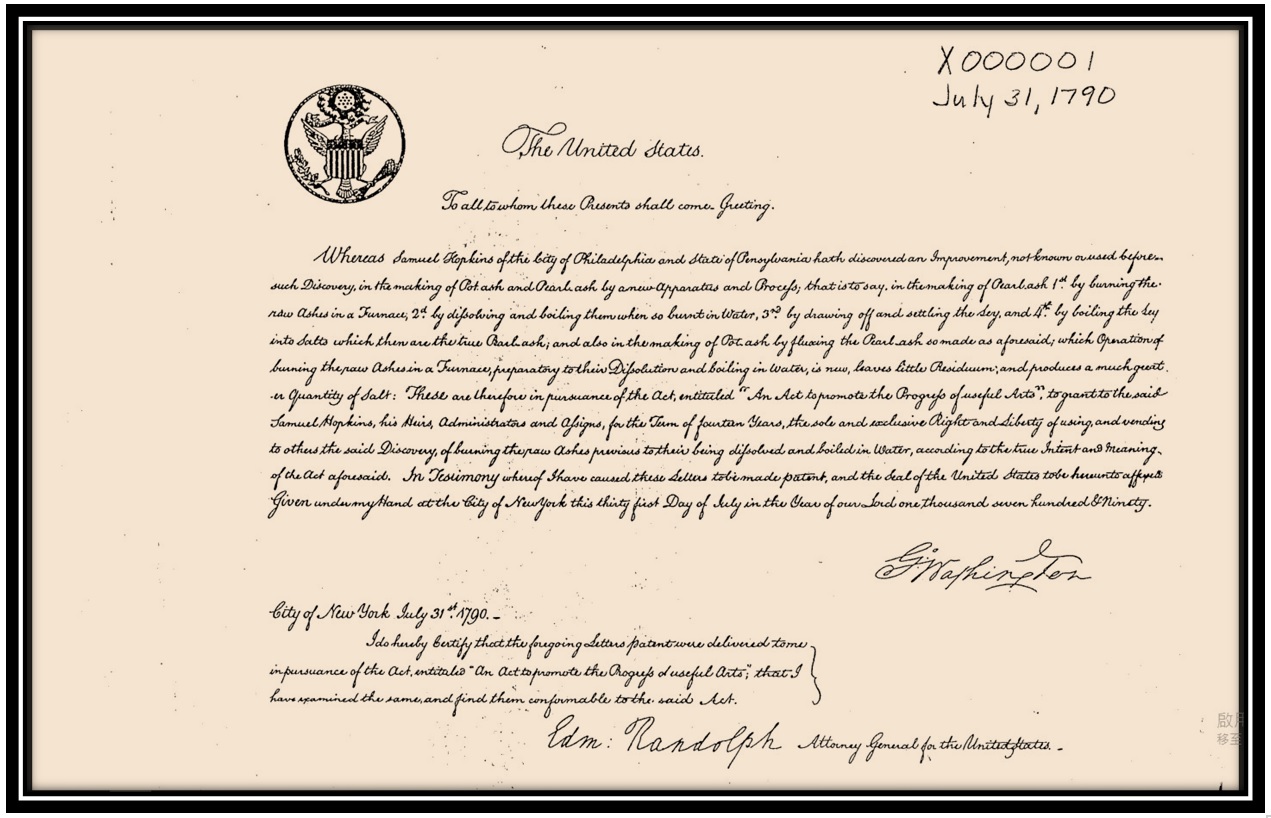 X000001
July 31, 1790
The United States.
To all to whom these Presents shall come. Greeting.
Whereas Samuel Hopkins of the City of Philadelphia and State of Pensylvania hath discovered an Improvement, not known or used before
such Discovery, in the making of Pot ash and Pearl ash by a new Apparatus and Process; that is to say, in the making of Pearl ash 1st by burning the
raw Ashes in a Furnace, 2d by dissolving and boiling them when so burnt in Water, 3rd by drawing off and settling the Ley, and 4th by boiling the Ley
into Salts which then are the true Pearl ash; and also in the making of Pot ash by fluxing the Pearl ash so made as aforesaid; which Operation of
burning the raw Ashes in a Furnace, preparatory to their Dissolution and boiling in Water, is new, leaves little Residuum; and produces a much great
er Quantity of Salt: These are therefore in pursuance of the Act, entituled "An Act to promote the Progress of useful Arts", to grant to the said
Samuel Hopkins, his Heirs, Administrators and Assigns, for the Term of fourteen Years, the sole and exclusive Right and Liberty of using, and vending
to others the said Discovery, of burning the raw Ashes previous to their being dissolved and boiled in Water, according to the true Intent and Meaning
of the Act aforesaid. In Testimony whereof I have caused these Letters to be made patent, and the Seal of the United States to be hereunto affixed
Given under my Hand at the City of New York this thirty first Day of July in the Year of our Lord one thousand seven hundred & Ninety.
G. Washington
City of New York July 31st 1790. -
I do hereby Certify that the foregoing Letters patent were delivered to me
in pursuance of the Act, entituled "An Act to promote the Progress of useful Arts"; that I
have examined the same, and find them conformable to the said Act.
Edm: Randolph Attorney General for the United States. -
啟用
移至